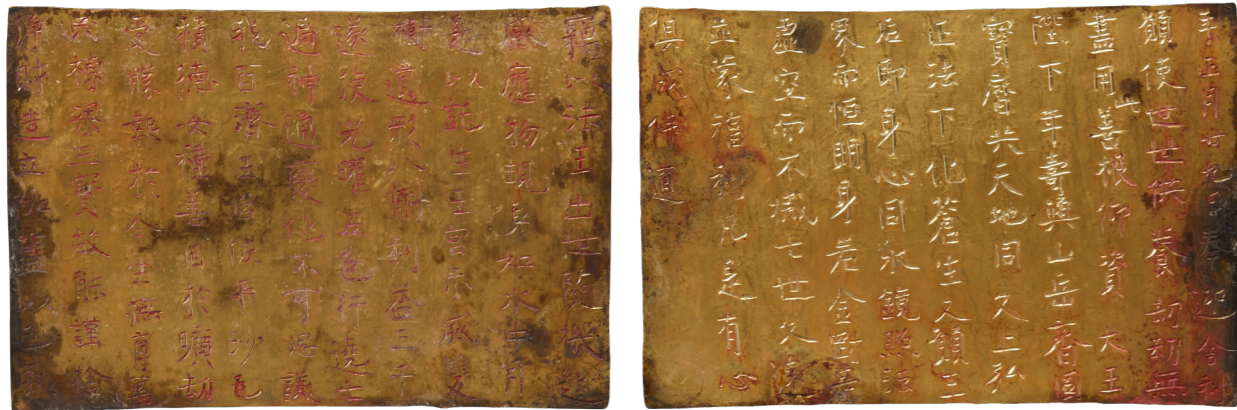 竊以法王出世隨機赴
感應物現身如水中月
是以託生王宮示滅雙
樹遺形八斛利益三千
遂使光曜五色行遶七
遍神通變化不可思議
我百濟王后佐平沙乇
積德女種善因於曠劫
受勝報於今生撫育萬
民棟梁三寶故能謹捨
淨財造立伽藍以己亥
年正月廿九日奉迎舍利
願使世世供養劫劫無
盡用此善根仰資 大王
陛下年壽與山岳齊固
寶曆共天地同久上弘
正法下化蒼生又願王
后即身心同水鏡照法
界而恒明身若金剛等
虛空而不滅七世久遠
並蒙福利凡是有心
俱成佛道